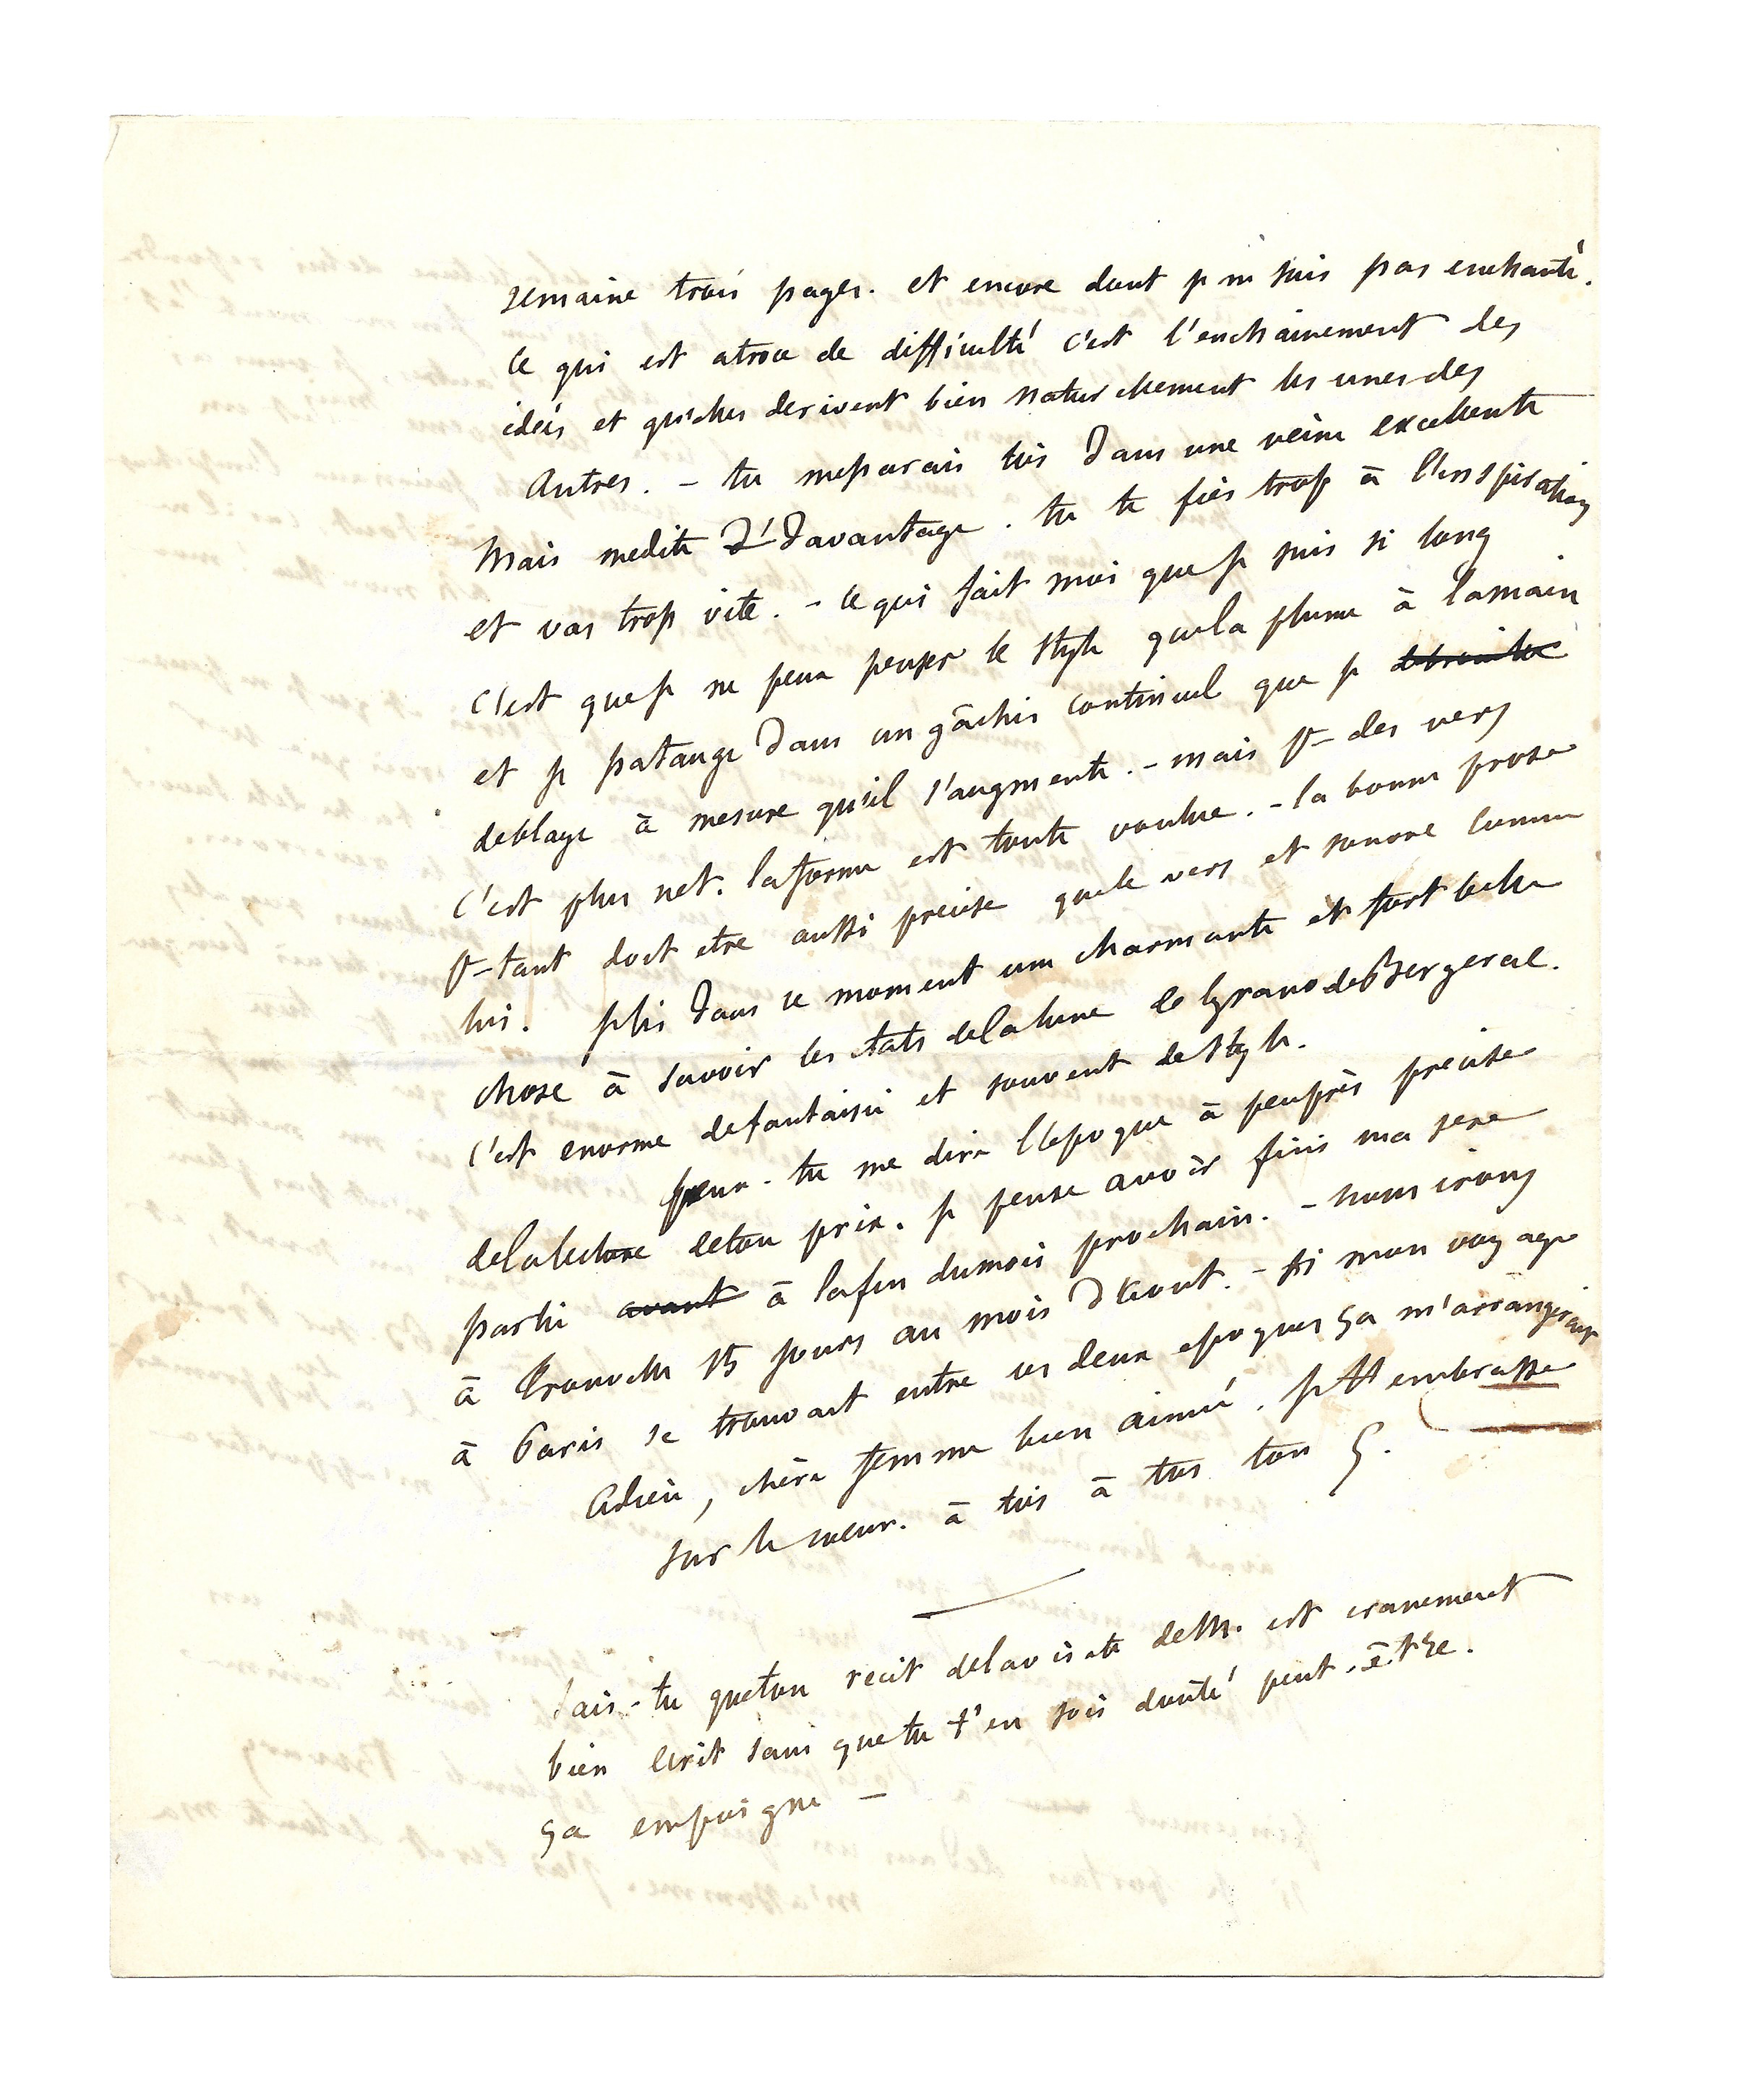 semaine trois pages. et encore dont je ne suis pas enchanté.
ce qui est atroce de difficulté c'est l'enchainement des
idées et qu'elles derivent bien naturellement les unes des
autres. - tu me parais toi dans une veine excellente
mais medite d' davantage. tu te fies trop à l'inspiration
et vas trop vite. - ce qui fait moi que je suis si long
c'est que je ne peux penser le style que la plume à la main
et je patauge dans un gâchis continuel que je debrouille
deblaye à mesure qu'il s'augmente. - mais pr des vers
c'est plus net. la forme est toute voulue. - la bonne prose
pr-tant doit etre aussi precise que le vers et sonore comme
lui. je lis dans ce moment une charmante et fort belle
chose à savoir les états de la lune de Cyrano de Bergerac.
c'est enorme de fantaisie et souvent de style.
peux-tu me dire l'epoque à peu près precise
de la lecture de ton prix. je pense avoir fini ma 1ere
partie avant à la fin du mois prochain. - nous irons
à Trouville 15 jours au mois d'Aout. - si mon voyage
à Paris se trouvait entre ces deux epoques ça m'arrangerait
Adieu, chère femme bien aimée, je t'embrasse
sur le coeur. à toi à toi ton G.
sais-tu que ton recit de la visite de M. est cranement
bien ecrit sans que tu t'en sois douté peut-être.
ça empoigne -